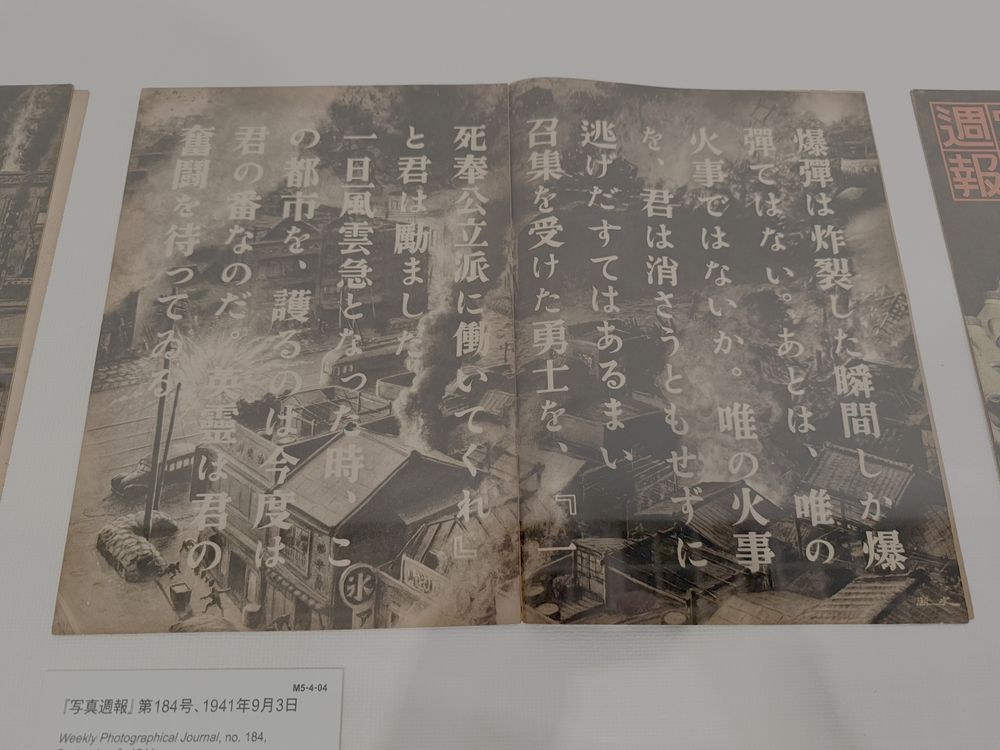 爆彈は炸裂した瞬間しか爆
彈ではない。あとは、唯の
火事ではないか。唯の火事
を、君は消さうともせずに
逃げだすてはあるまい
召集を受けた勇士を、『一
死奉公立派に働いてくれ』
と君は勵ました
一旦風雲急となつた時、こ
の都市を、護るのは今度は
君の番なのだ。英靈は君の
奮闘を待つてゐる
氷
週報
M5-4-04
『写真週報』第184号、1941年9月3日
Weekly Photographical Journal, no. 184,